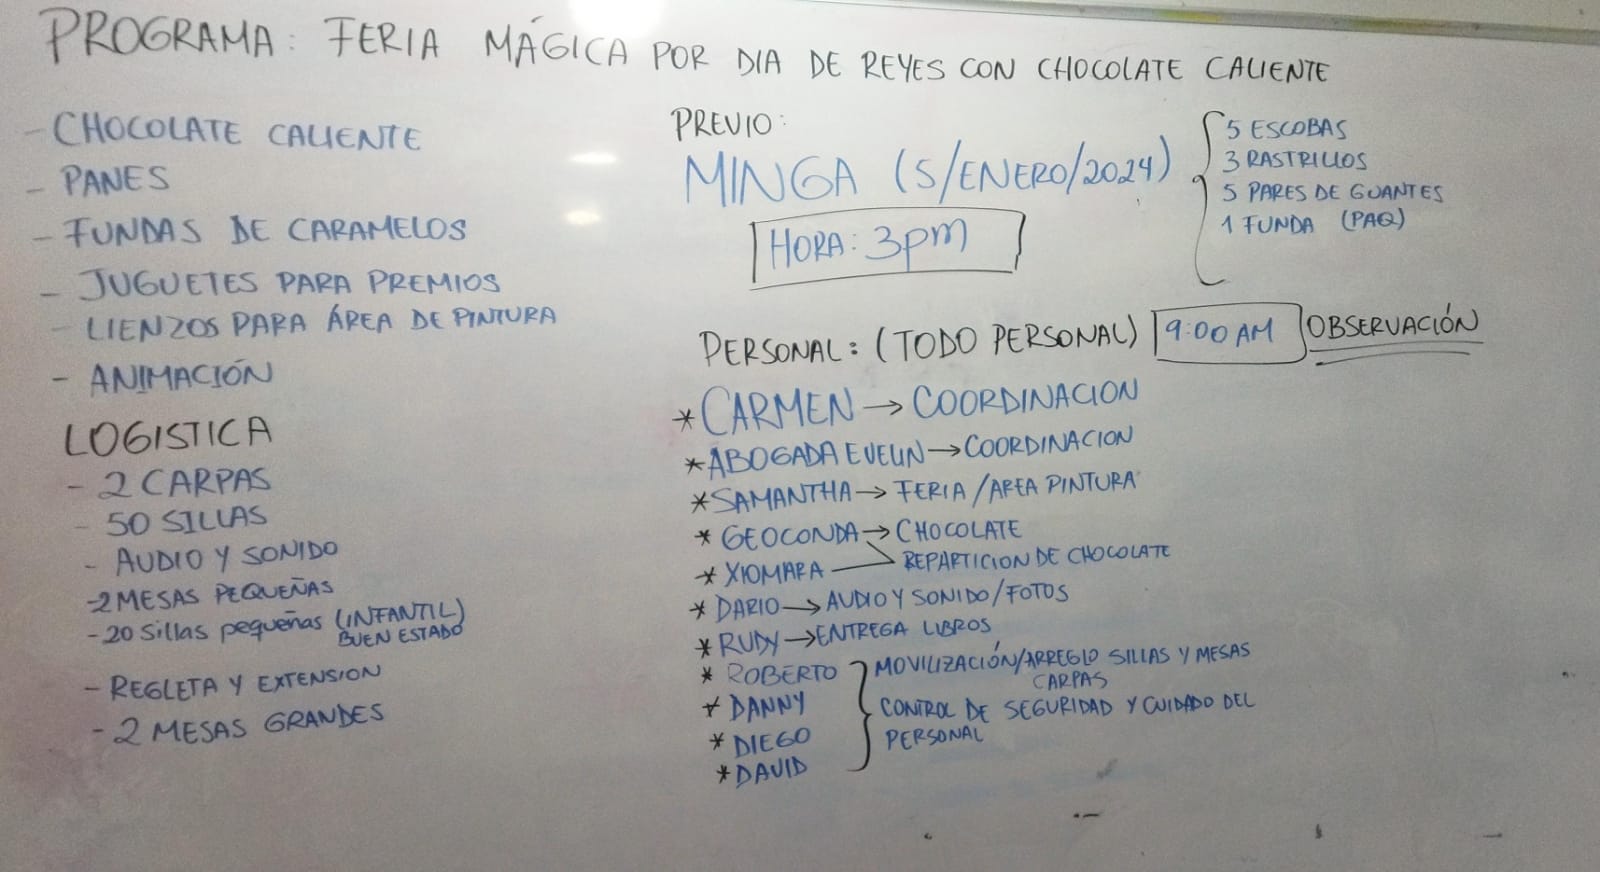 PROGRAMA: FERIA MÁGICA POR DIA DE REYES CON CHOCOLATE CALIENTE
- CHOCOLATE CALIENTE
- PANES
- FUNDAS DE CARAMELOS
- JUGUETES PARA PREMIOS
- LIENZOS PARA ÁREA DE PINTURA
- ANIMACIÓN
LOGISTICA
- 2 CARPAS
- 50 SILLAS
- AUDIO Y SONIDO
- 2 MESAS PEQUEÑAS
- 20 Sillas pequeñas (INFANTIL)
BUEN ESTADO
- REGLETA Y EXTENSION
- 2 MESAS GRANDES
PREVIO:
MINGA (5/ENERO/2024)
HORA: 3pm
5 ESCOBAS
3 RASTRILLOS
5 PARES DE GUANTES
1 FUNDA (PAQ)
PERSONAL: (TODO PERSONAL) 9:00 AM OBSERVACIÓN
* CARMEN → COORDINACION
* ABOGADA EVELIN → COORDINACION
* SAMANTHA → FERIA / AREA PINTURA
* GEOCONDA → CHOCOLATE
* XIOMARA → REPARTICION DE CHOCOLATE
* DARIO → AUDIO Y SONIDO / FOTOS
* RUDY → ENTREGA LIBROS
* ROBERTO
* DANNY
* DIEGO
* DAVID
MOVILIZACIÓN/ARREGLO SILLAS Y MESAS
CARPAS
CONTROL DE SEGURIDAD Y CUIDADO DEL
PERSONAL